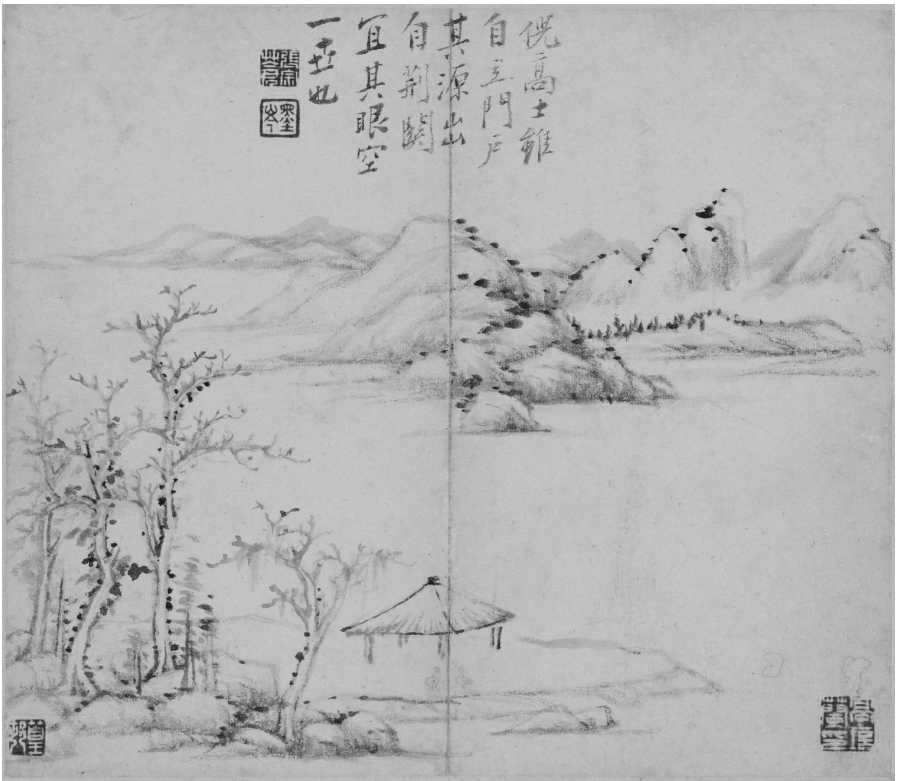 倪高士雖
自立門戶
其源出
自荆關
宜其眼空
一世也